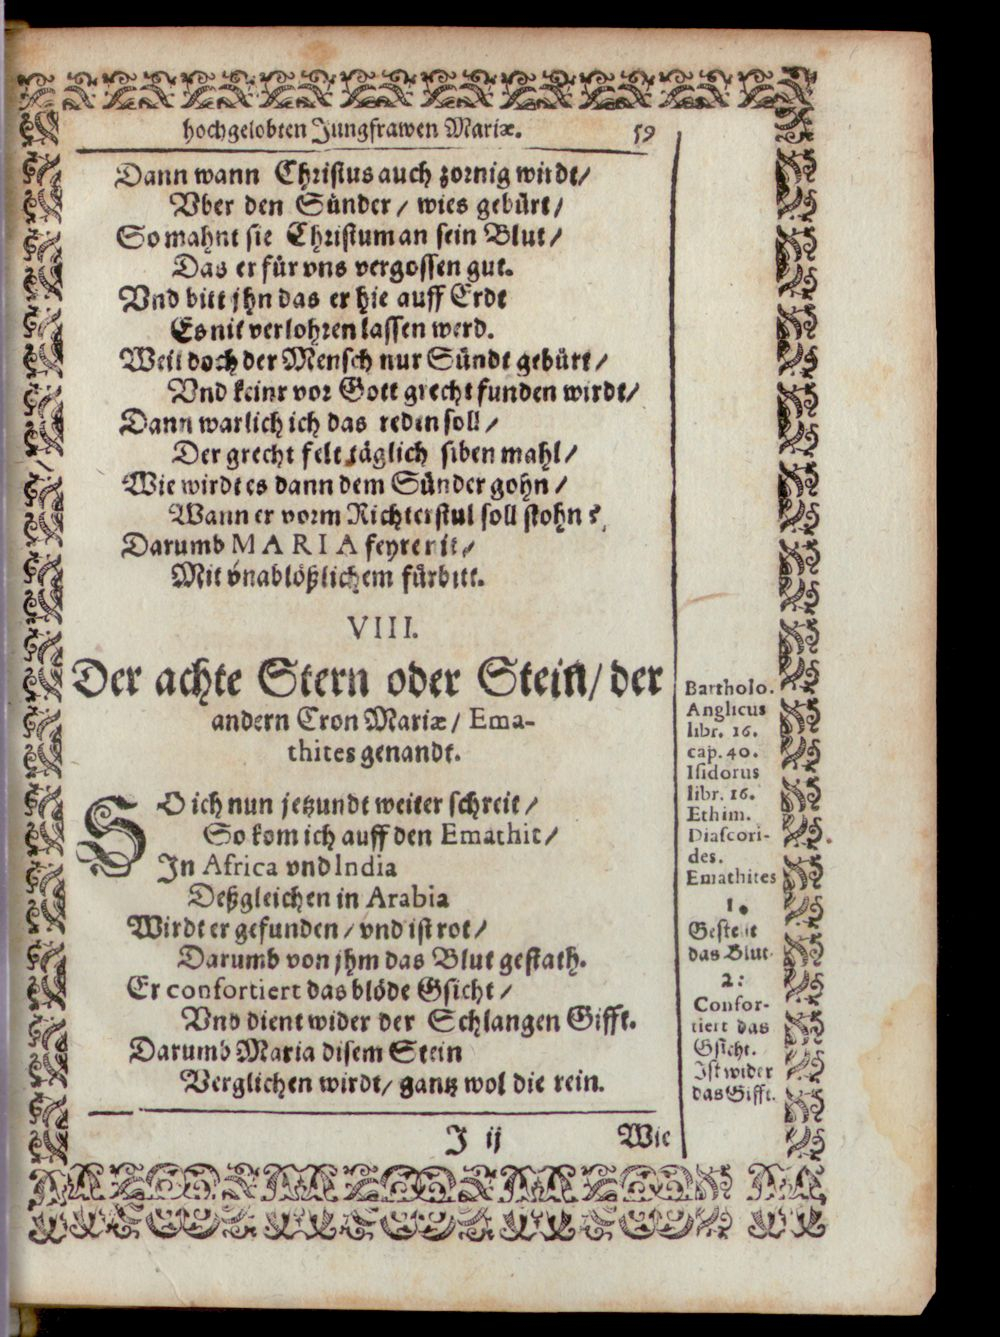 hochgelobten Jungfrawen Mariæ. 59
Dann wann Christus auch zornig wirdt/
Vber den Sünder / wies gebürt/
So mahnt sie Christum an sein Blut/
Das er für vns vergossen gut.
Vnd bitt jhn das er hie auff Erdt
Es nit verlohren lassen werd.
Weil doch der Mensch nur Sündt gebürt/
Vnd keinr vor Gott grecht funden wirdt/
Dann warlich ich das reden soll/
Der grecht felt täglich siben mahl/
Wie wirdt es dann dem Sünder gohn/
Wann er vorm Richterstul soll stohn?
Darumb MARIA feyre nit/
Mit vnablößlichem fürbitt.
VIII.
Der achte Stern oder Stein/ der
andern Cron Mariæ/ Ema-
thites genandt.
SO ich nun jetzundt weiter schreit/
So kom ich auff den Emathit/
In Africa vnd India
Deßgleichen in Arabia
Wirdt er gefunden/ vnd ist rot/
Darumb von jhm das Blut gestath.
Er confortiert das blöde Gsicht/
Vnd dient wider der Schlangen Gifft.
Darumb Maria disem Stein
Verglichen wirdt/ gantz wol die rein.
J ij Wie
Bartholo.
Anglicus
libr. 16.
cap. 40.
Isidorus
libr. 16.
Ethim.
Diascori-
des.
Emathites
1.
Gestelit
das Blut.
2.
Confor-
tiert das
Gsicht.
Ist wider
das Gifft.